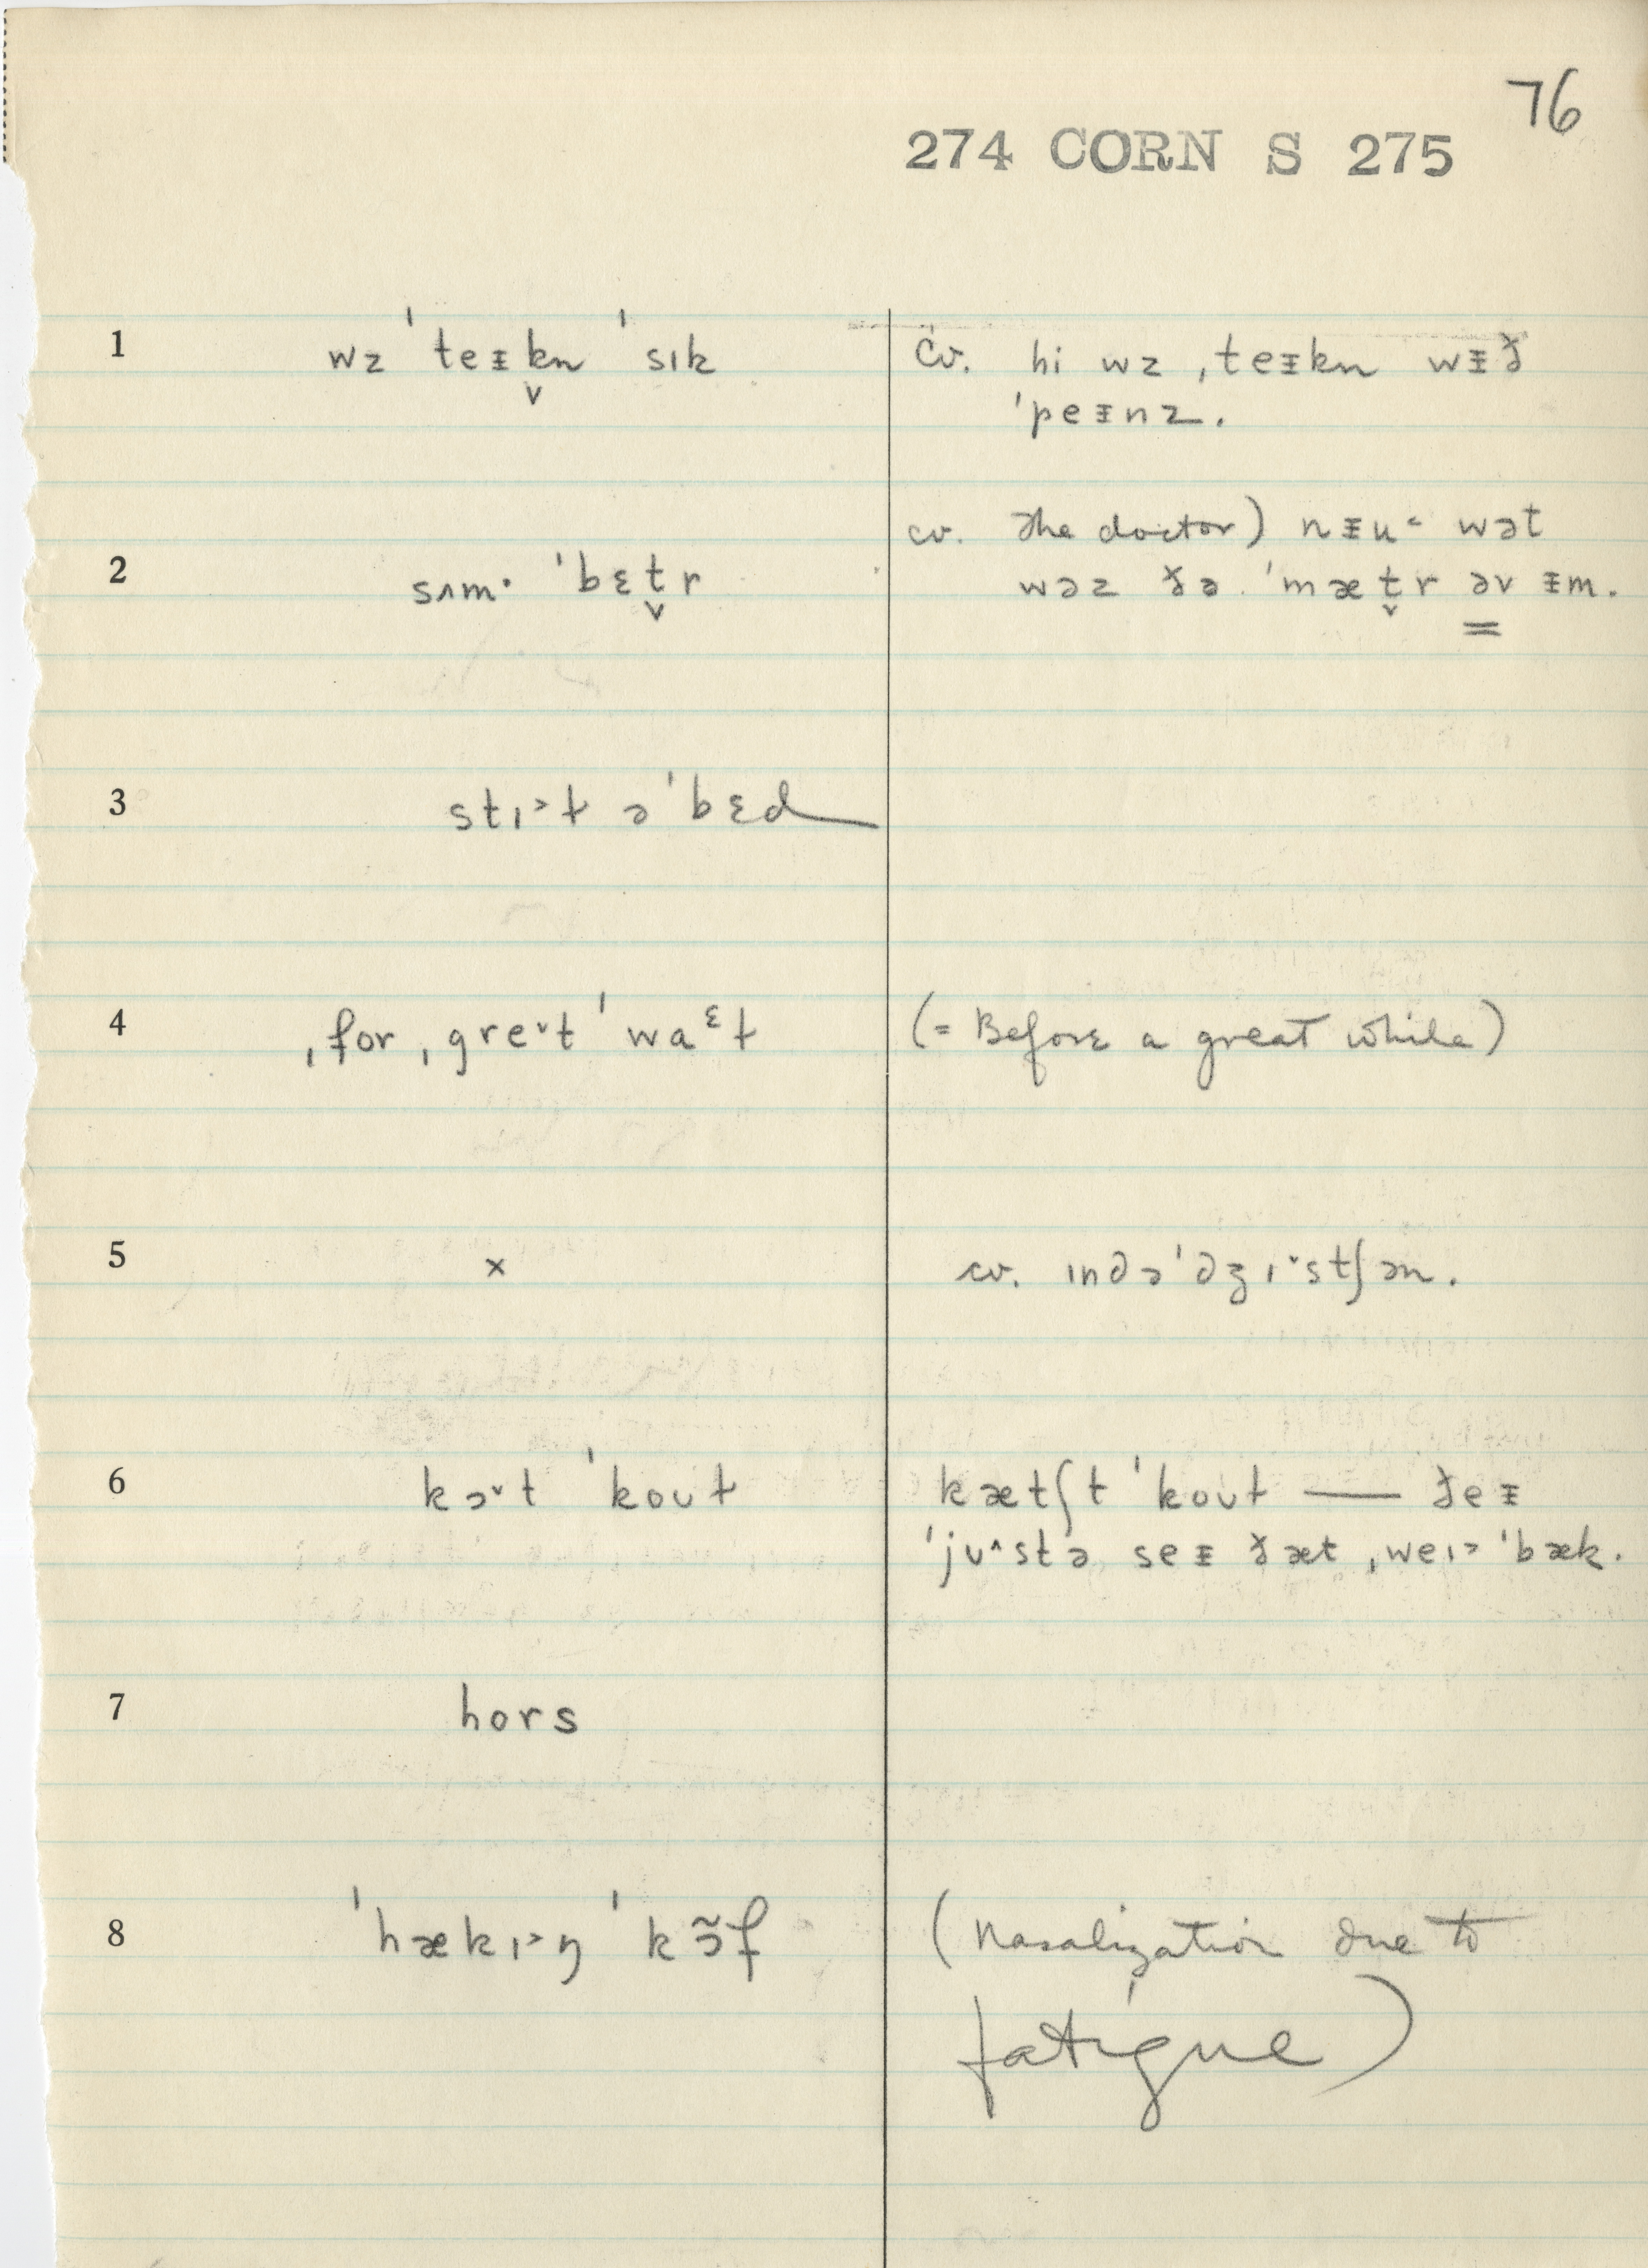 76
274 CORN S 275
1 wz ˈteᵻk̬n ˈsɪk
cv. hi wz ˌteᵻkn wᵻð
ˈpeᵻnz.
cv. The doctor) nᵻu˂ wət
2 sʌm· ˈbɛt̬r
wəz ðə ˈmæt̬r əv ᵻm.
3 stɪ˃ɫ əˈbɛd
4 ˌfor ˌgre˅t ˈwaᵋɫ
(= Before a great while)
5 x
cv. ɪndəˈdʒɪ˅stʃən.
6 kɔ˅t ˈkoʊɫ
kætʃt ˈkoʊɫ — ðeᵻ
ˈjʊ˄stə seᵻ ðæt ˌweɪ˃ ˈbæk.
7 hors
8 ˈhækɪ˃ŋ ˈkɔ̃f
(Nasalization due to
fatigue)